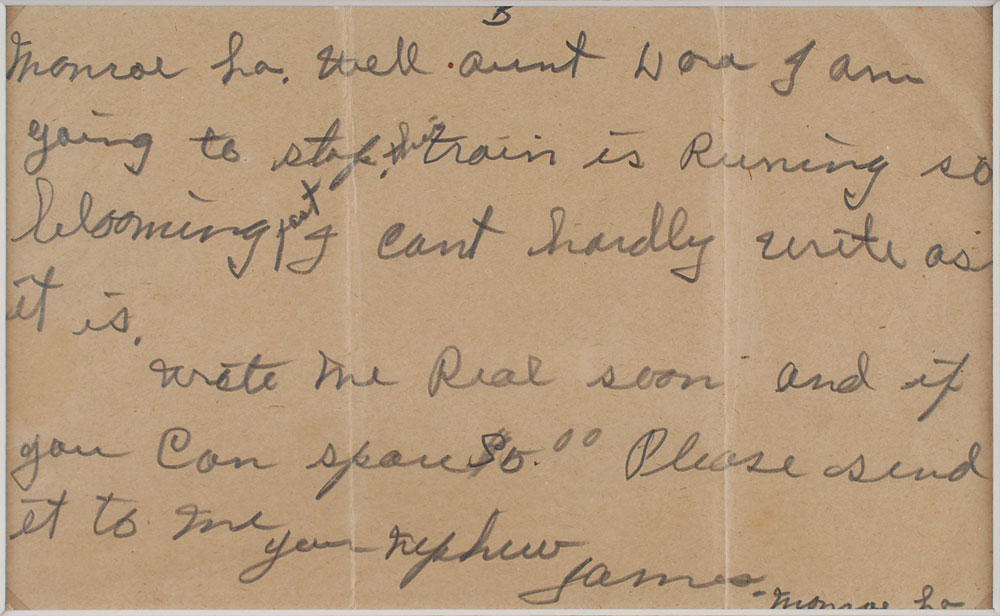 B
Monroe La. Well aunt Dora I am
going to stop. this train is Runing so
blooming fast I cant hardly write as
it is.
write me Real soon and if
you Can spare $0.00 Please send
it to me
your Nephew
James
Monroe La